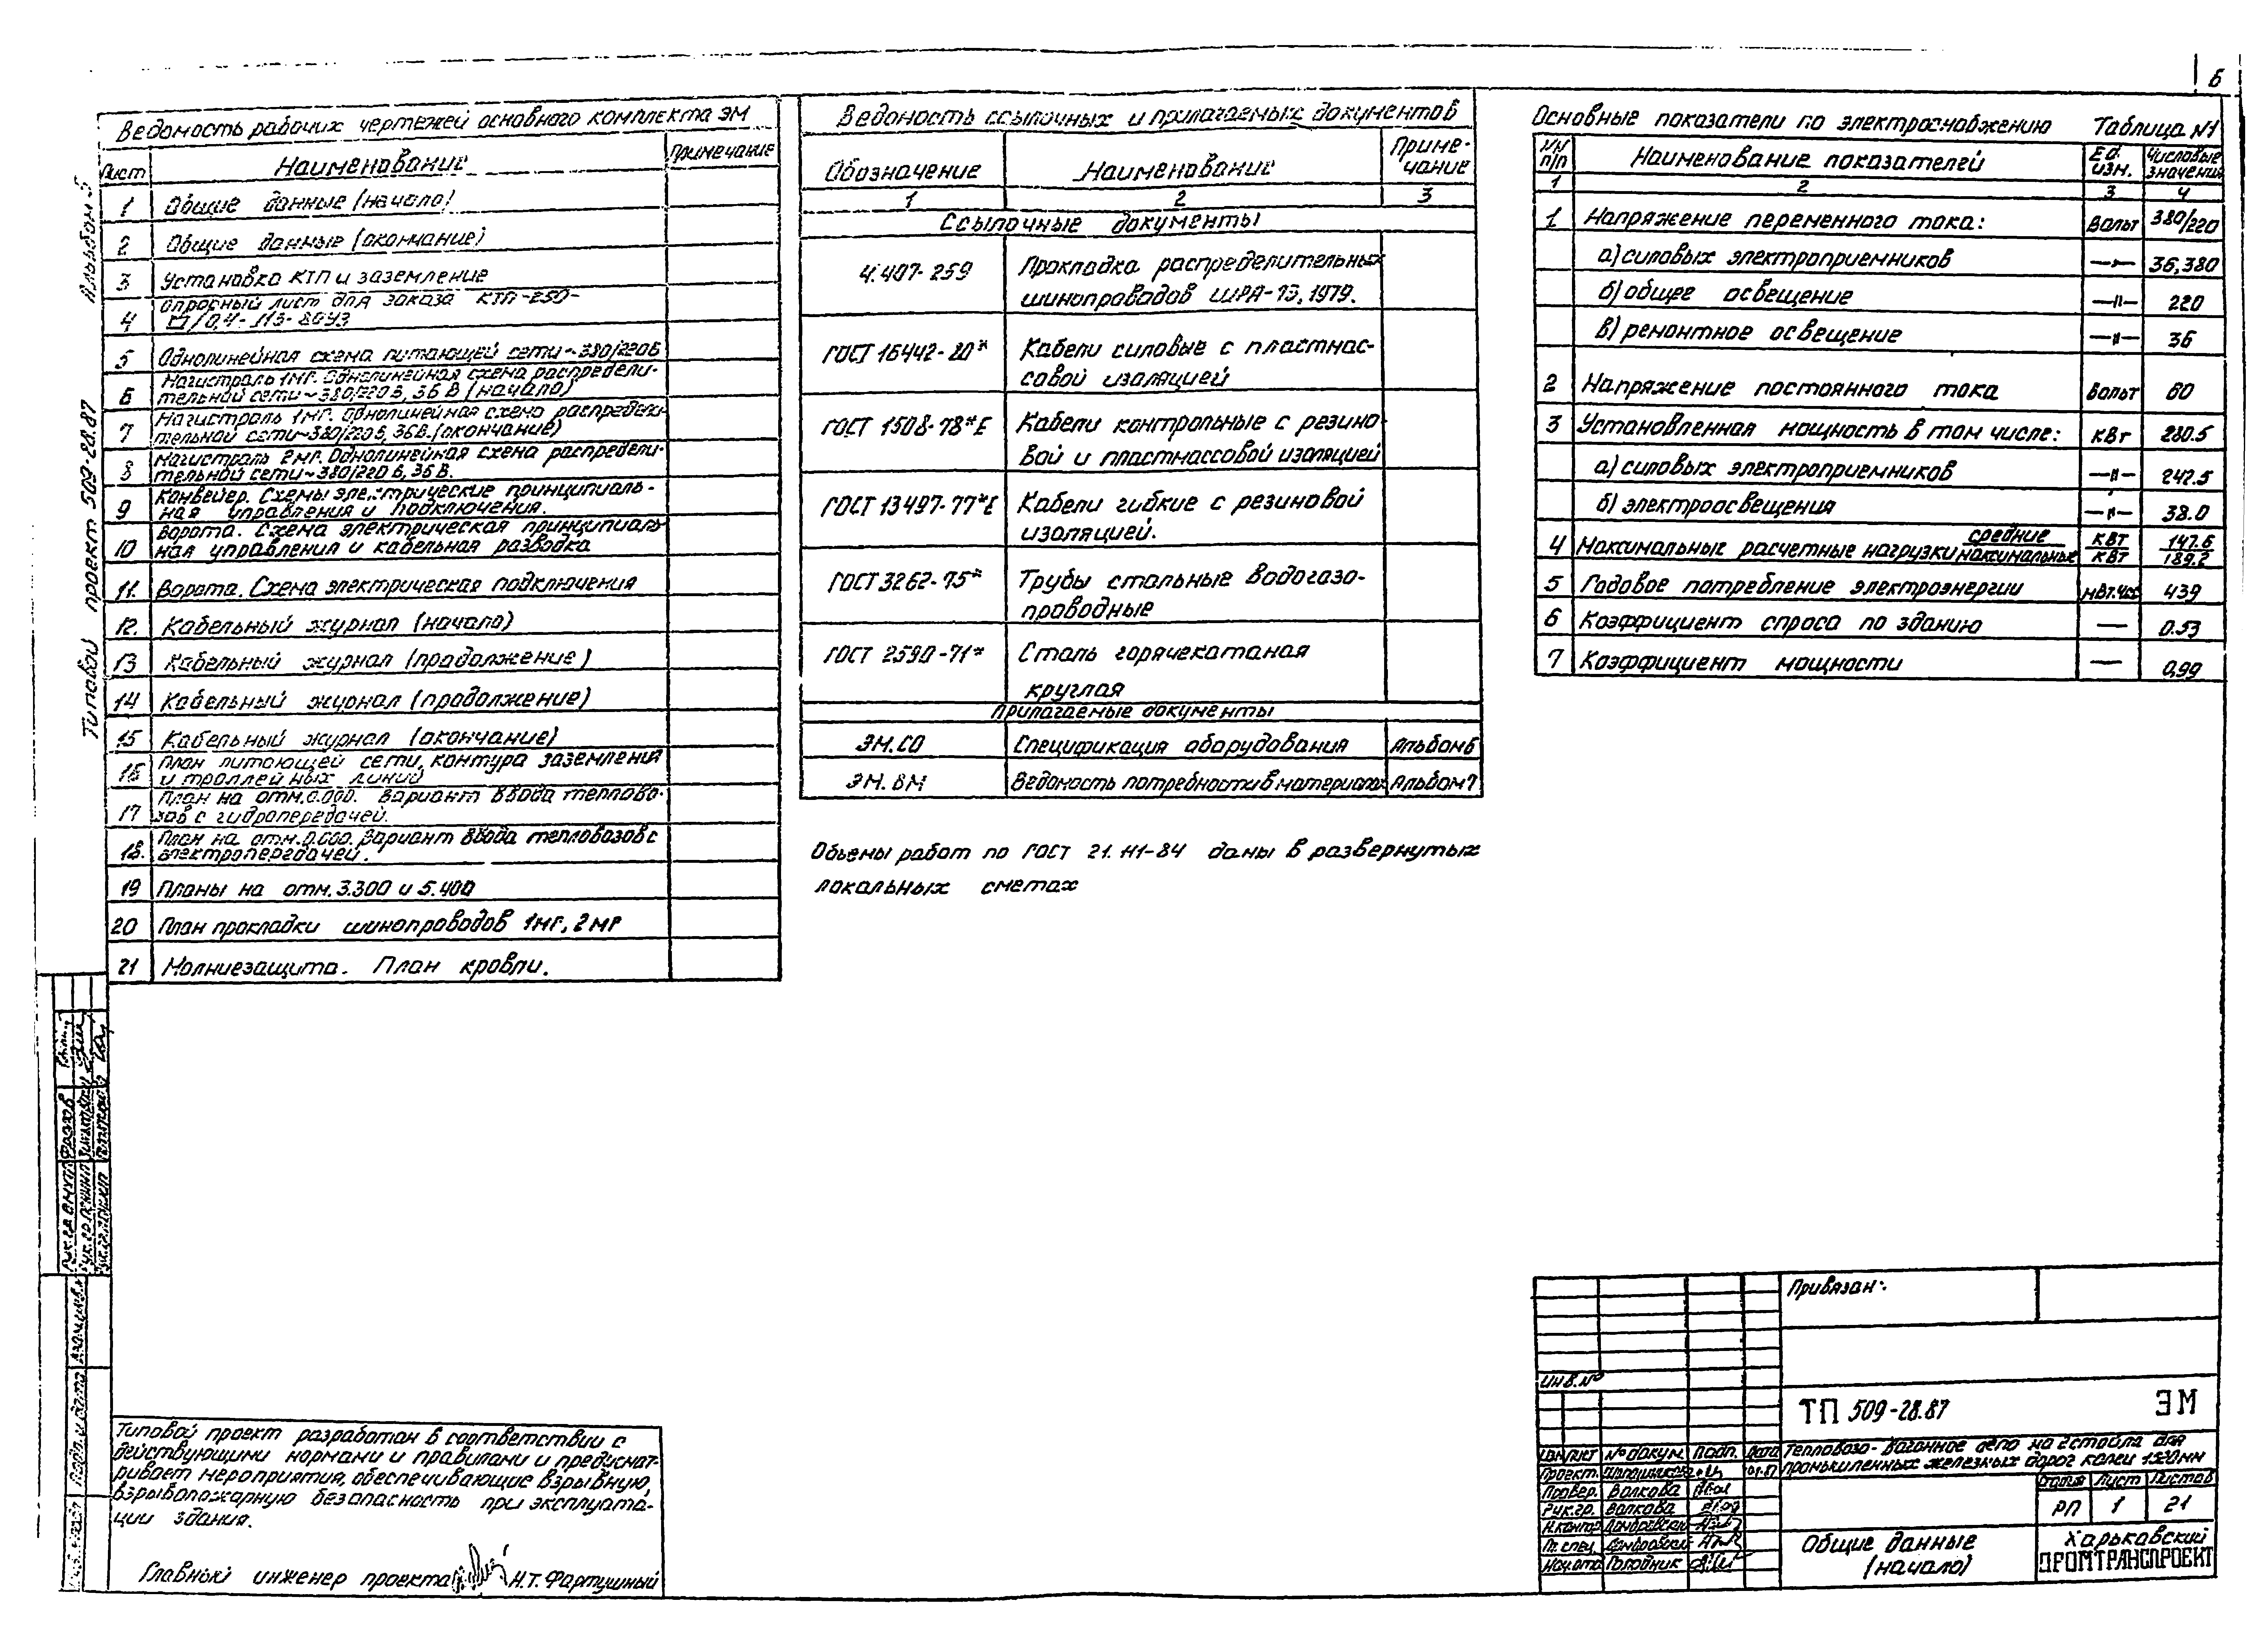 6
Альбом 5
Типовой проект 509-28.87
Ведомость рабочих чертежей основного комплекта ЭМ
Лист Наименование Примечание
1 Общие данные (начало)
2 Общие данные (окончание)
3 Установка КТП и заземление
4 Опросный лист для заказа КТП-250-
□/0,4-113-80У3
5 Однолинейная схема питающей сети ~380/220В
6 Магистраль 1МГ. Однолинейная схема распредели-
тельной сети ~380/220 В, 36 В (начало)
7 Магистраль 1МГ. Однолинейная схема распредели-
тельной сети ~380/220 В, 36В. (окончание)
8 Магистраль 2МГ. Однолинейная схема распредели-
тельной сети ~380/220 В, 36 В.
9 Конвейер. Схемы электрические принципиаль-
ная управления и подключения.
10 Ворота. Схема электрическая принципиаль-
ная управления и кабельная разводка
11. Ворота. Схема электрическая подключения
12. Кабельный журнал (начало)
13 Кабельный журнал (продолжение)
14 Кабельный журнал (продолжение)
15 Кабельный журнал (окончание)
16 План питающей сети, контура заземления
и троллейных линий
17 План на отм. 0.000. Вариант ввода теплово-
зов с гидропередачей.
18. План на отм. 0.000. Вариант ввода тепловозов с
электропередачей.
19 Планы на отм. 3.300 и 5.400
20 План прокладки шинопроводов 1МГ, 2МГ
21 Молниезащита. План кровли.
Ведомость ссылочных и прилагаемых документов
Обозначение Наименование Приме-
чание
1 2 3
Ссылочные документы
4.407-259 Прокладка распределительных
шинопроводов ШРА-73, 1979.
ГОСТ 16442-80* Кабели силовые с пластмас-
совой изоляцией
ГОСТ 1508-78*Е Кабели контрольные с резино-
вой и пластмассовой изоляцией
ГОСТ 13497-77*Е Кабели гибкие с резиновой
изоляцией.
ГОСТ 3262-75* Трубы стальные водогазо-
проводные
ГОСТ 2590-71* Сталь горячекатаная
круглая
Прилагаемые документы
ЭМ.СО Спецификация оборудования Альбом 6
ЭМ.ВМ Ведомость потребности в материалах Альбом 7
Объемы работ по ГОСТ 21.111-84 даны в развернутых
локальных сметах
Основные показатели по электроснабжению Таблица №1
NN
п/п Наименование показателей Ед.
изм. Числовые
значения
1 2 3 4
1 Напряжение переменного тока: Вольт 380/220
а) силовых электроприемников —"— 36,380
б) общее освещение —"— 220
в) ремонтное освещение —"— 36
2 Напряжение постоянного тока Вольт 60
3 Установленная мощность в том числе: кВт 280.5
а) силовых электроприемников —"— 242.5
б) электроосвещения —"— 38.0
4 Максимальные расчетные нагрузки средние кВт 147.6
максимальные кВт 189.2
5 Годовое потребление электроэнергии мВт.час 439
6 Коэффициент спроса по зданию — 0.53
7 Коэффициент мощности — 0,99
Типовой проект разработан в соответствии с
действующими нормами и правилами и предусмат-
ривает мероприятия, обеспечивающие взрывную,
взрывопожарную безопасность при эксплуата-
ции здания.
Главный инженер проекта Н.Т. Фартушный
Подп. и дата Взам.инв.№
Привязан:
Инв.№
ТП 509-28.87 ЭМ
Изм Лист № докум. Подп. Дата
Тепловозо-вагонное депо на 2 стойла для
промышленных железных дорог колеи 1520мм
Проект. 01.87
Провер. Волкова
Рук.гр. Волкова
Н.контр. Домбровский
Гл.спец. Домбровский
Нач.отд. Голодник
Стадия Лист Листов
РП 1 21
Общие данные
(начало)
Харьковский
ПРОМТРАНСПРОЕКТ